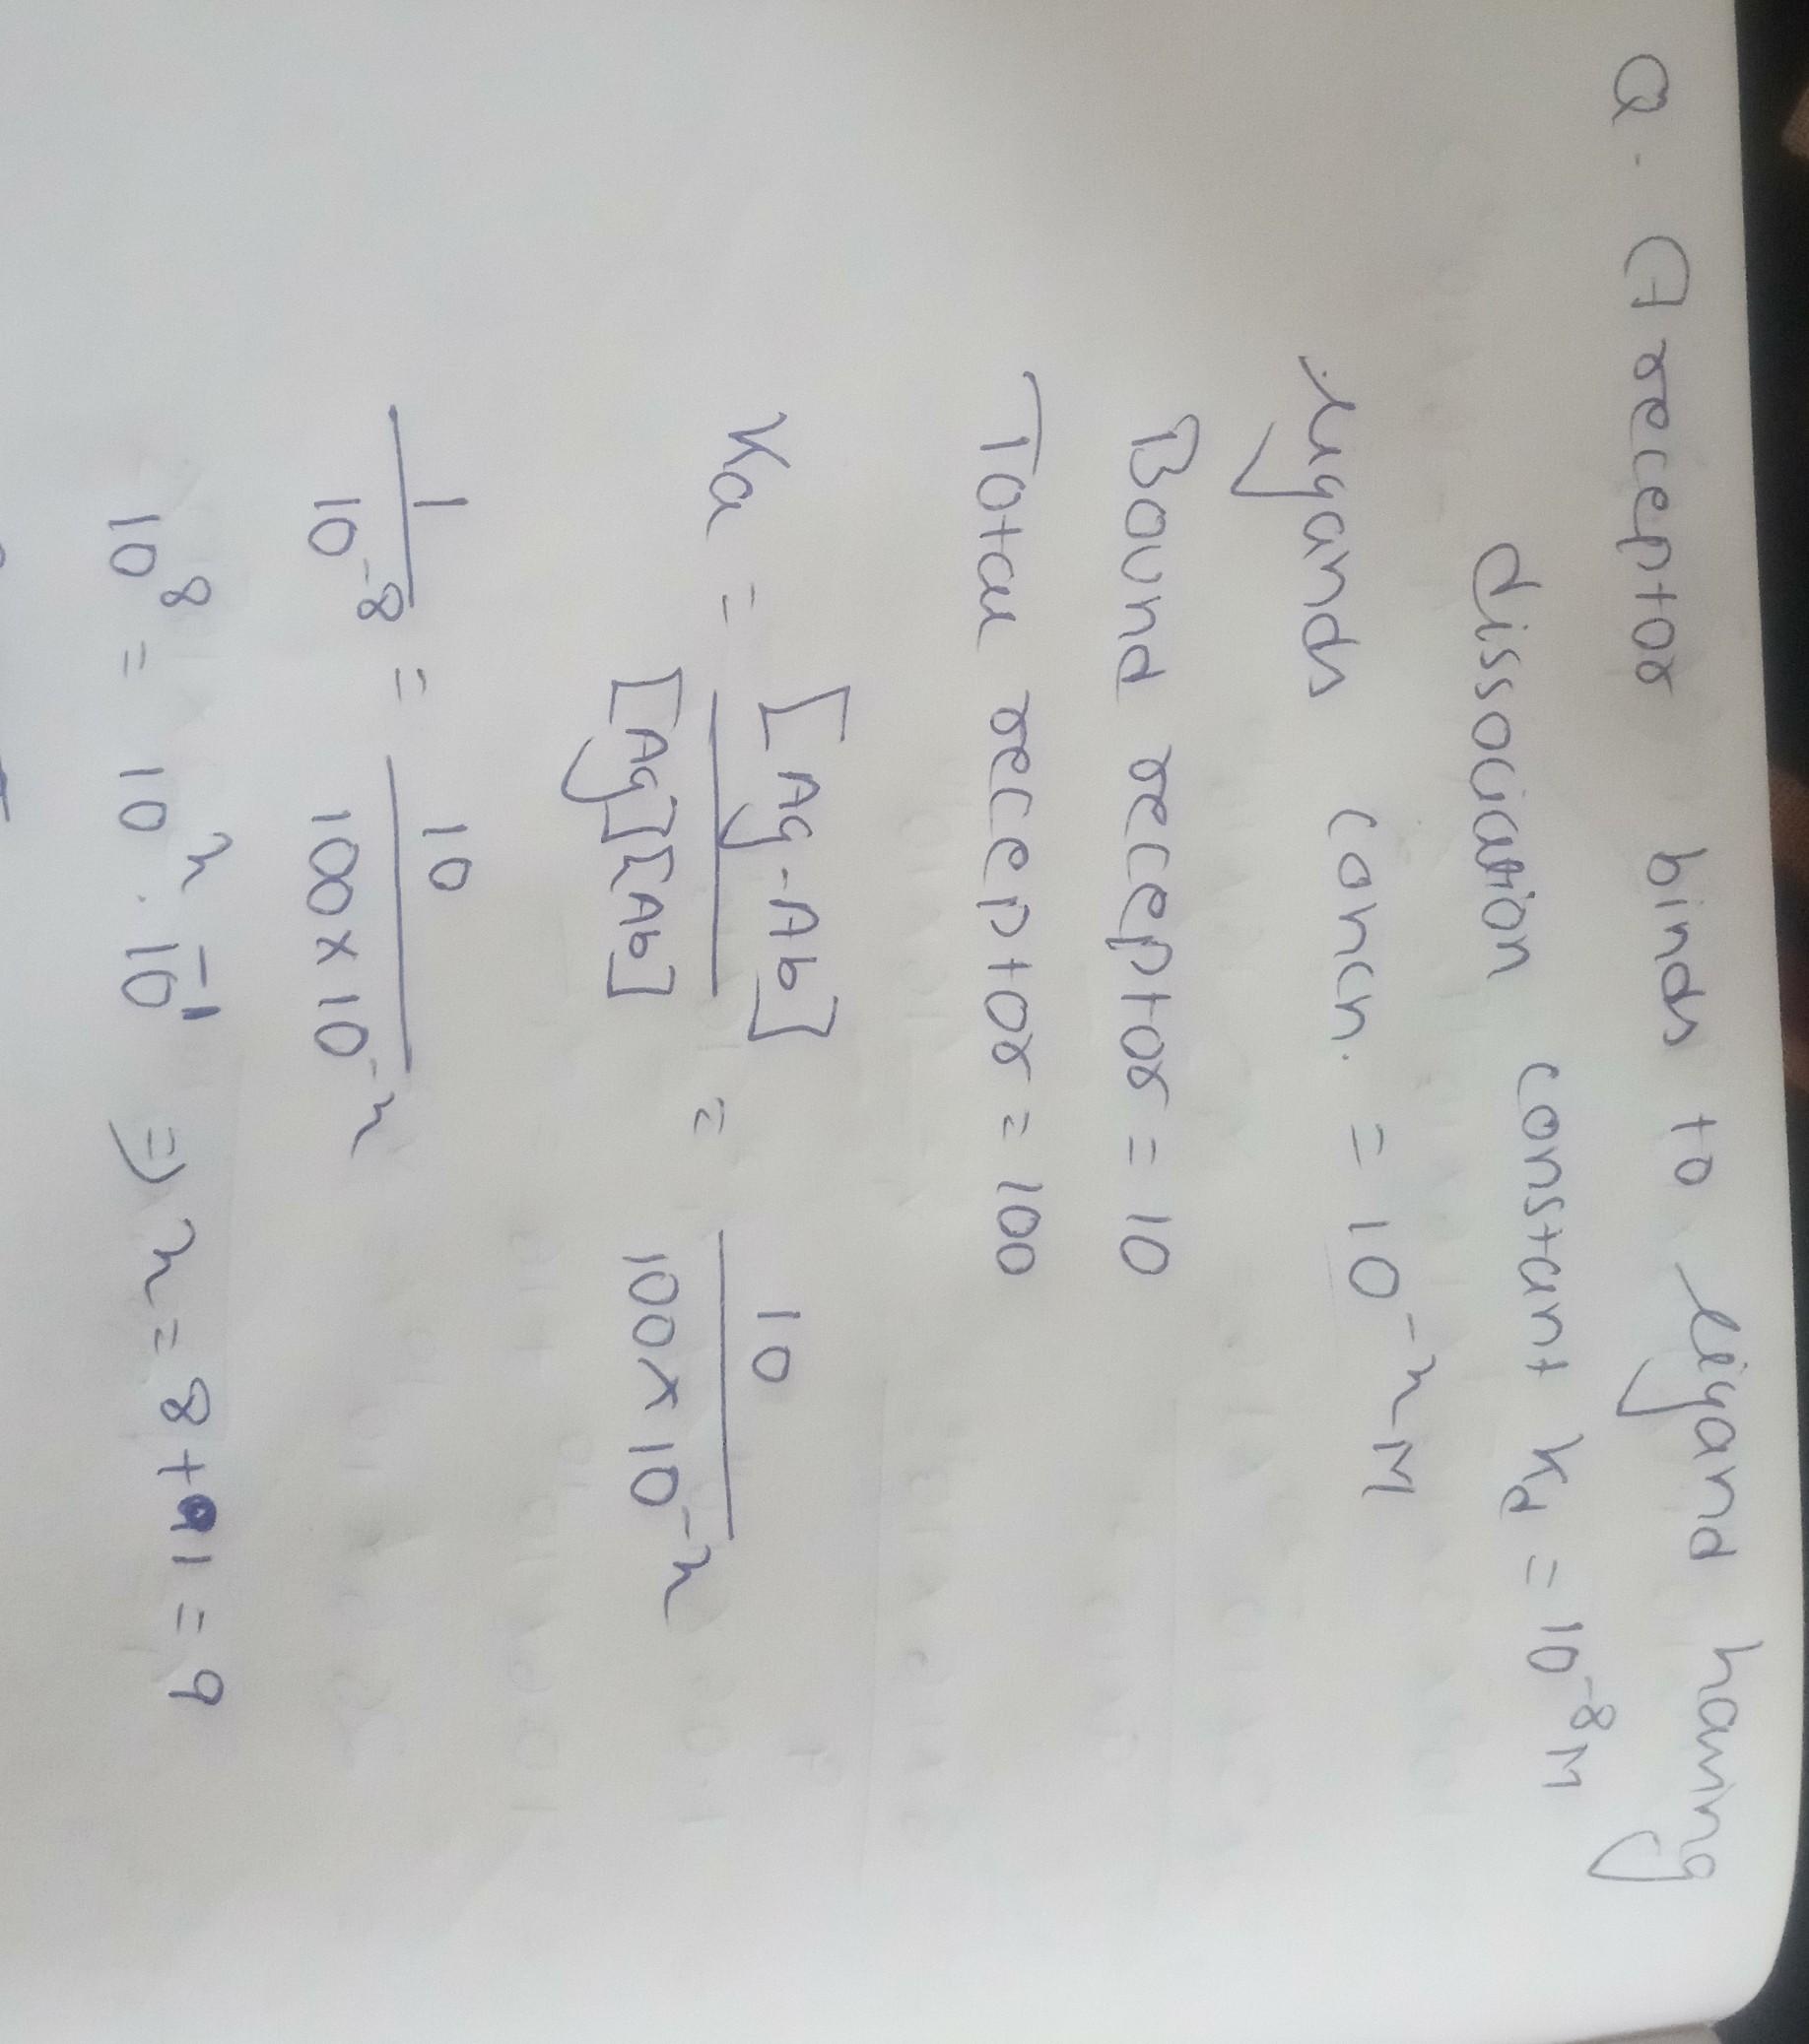 Q. A receptor binds to ligand having
dissociation constant Kd = 10⁻⁸M
ligands concn. = 10⁻ˣM
Bound receptor = 10
Total receptor = 100
Ka = [Ag-Ab] / [Ag][Ab] = 10 / 100×10⁻ˣ
1 / 10⁻⁸ = 10 / 100×10⁻ˣ
10⁸ = 10ˣ · 10⁻¹ ⇒ x = 8+1 = 9